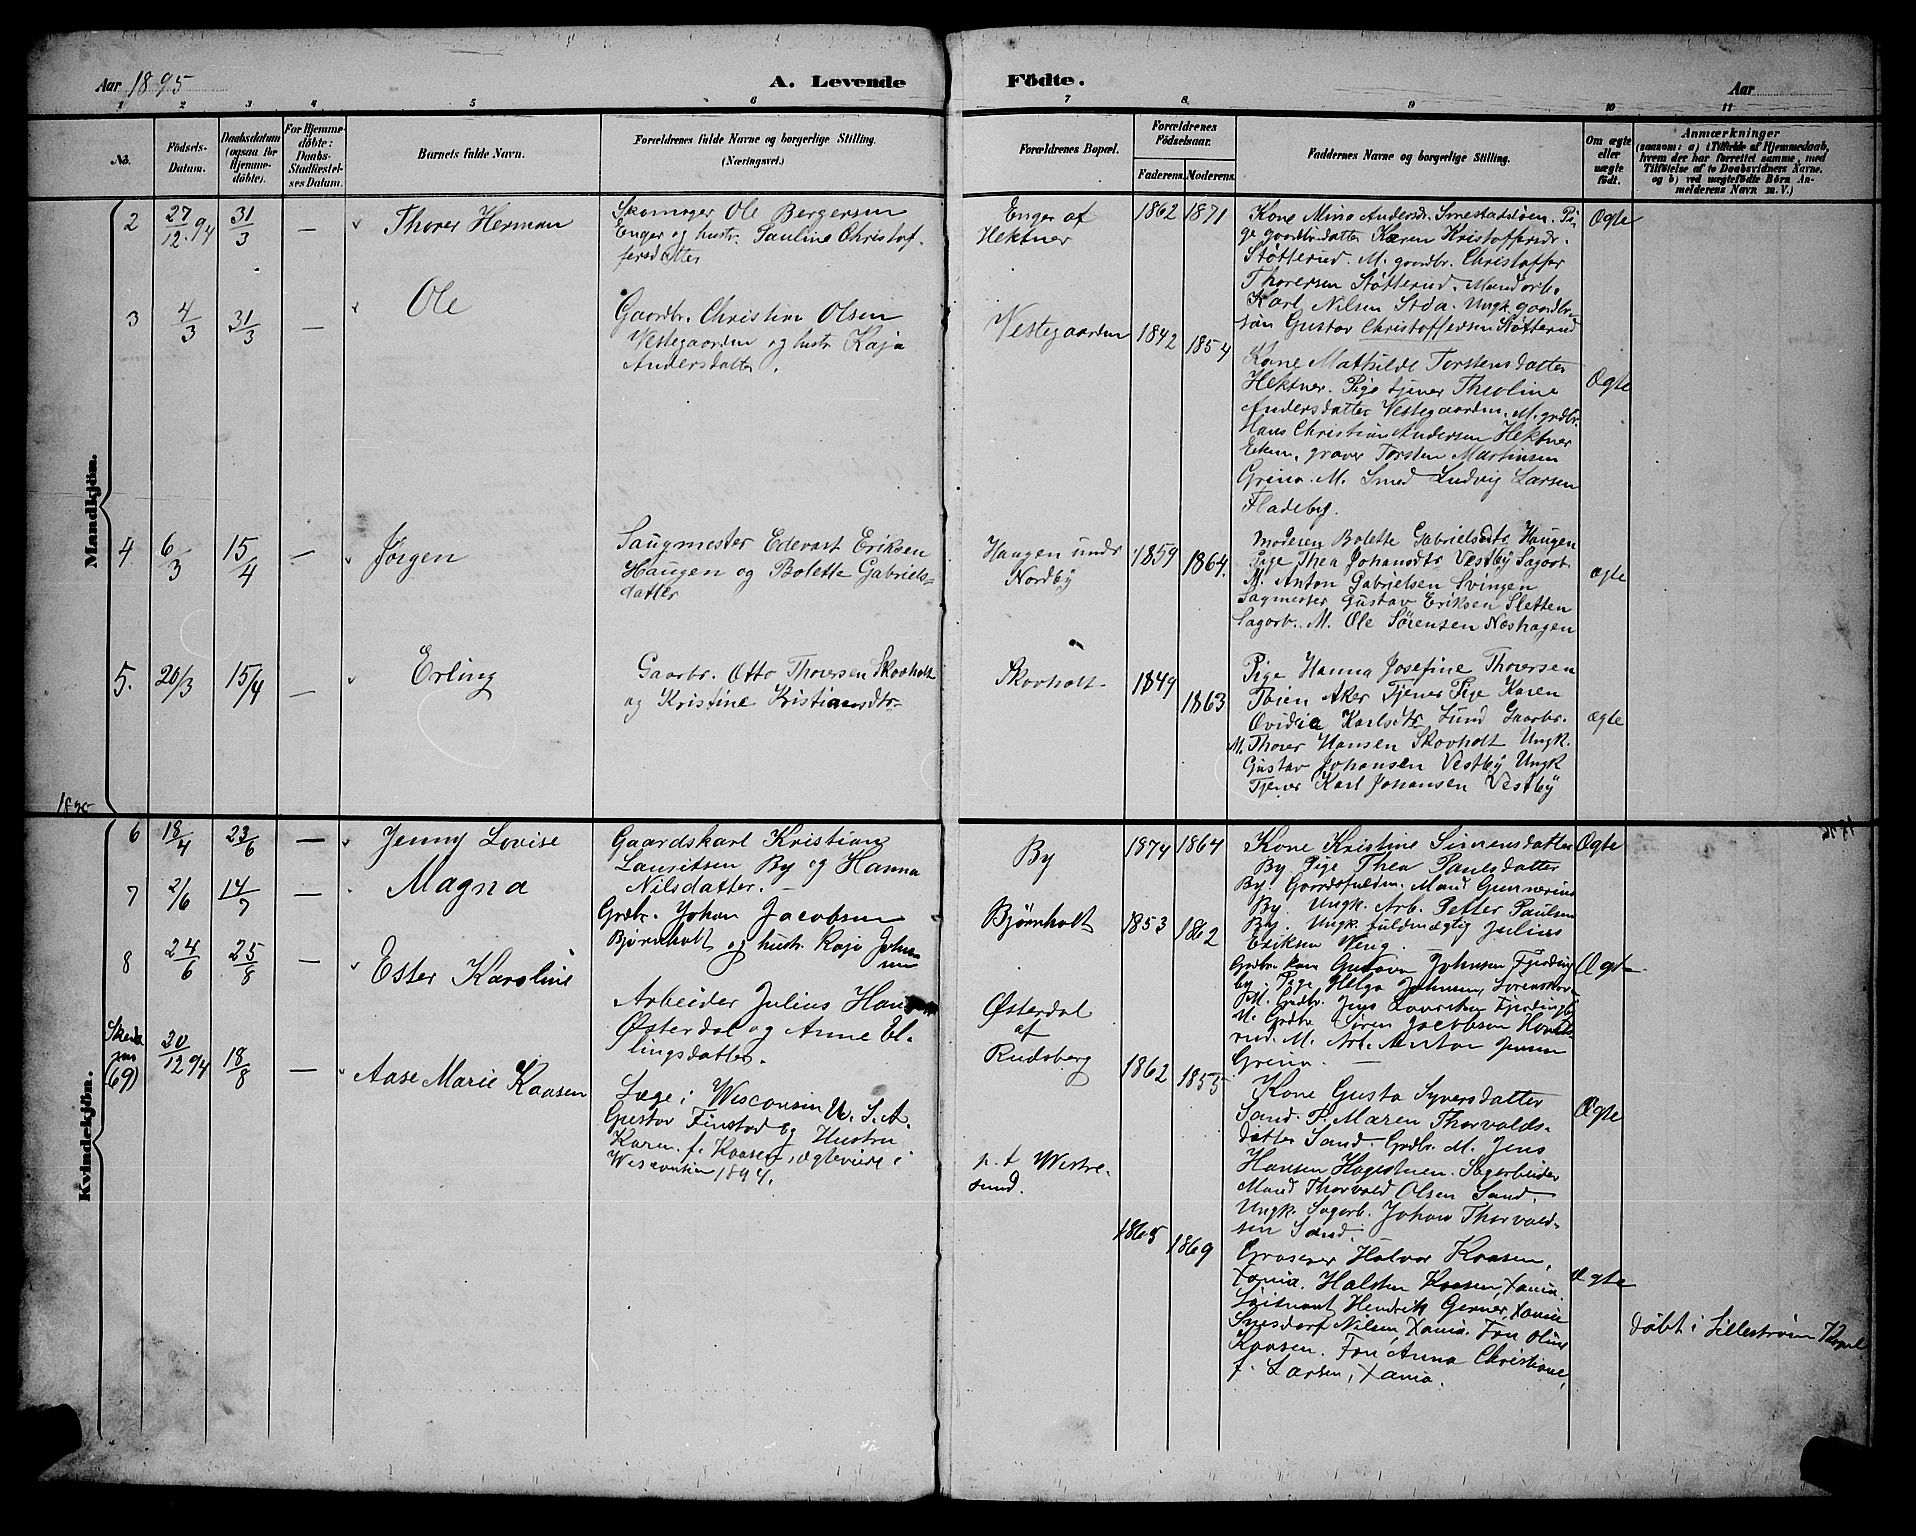 Aar 1895
A. Levende
Födte.
Aar
1 2 3 4 5 6 7 8 9 10 11
No.
Födsels-
Datum.
Daabsdatum
(ogsaa for
Hjemme-
döbte).
For Hjemme-
döbte:
Daabs-
Stadfæstel-
ses Datum.
Barnets fulde Navn.
Forældrenes fulde Navne og borgerlige Stilling.
(Næringsvei.)
Forældrenes Bopæl.
Forældrenes
Födselsaar.
Faderens. Moderens.
Faddernes Navne og borgerlige Stilling.
Om ægte
eller
uægte
födt.
Anmærkninger
(saasom: a) i Tilfælde af Hjemmedaab,
hvem der har forrettet samme, med
Tilföielse af to Daabsvidners Navne,
og b) ved uægtefödte Börn An-
melderens Navn m. V.)
Mandkjön.
2 27/12.94 31/3 — Thorer Herman
Skomager Ole Bergersen
Enger og hustr. Pauline Christof-
fersdatter
Enger af
Hektner
1862 1871
Kone Mina Andersdr. Smestadstøen. Pi-
ge gaardbr.datter Karen Kristoffersdr.
Støtterud. M. gaardbr. Christoffer
Thorersen Støtterud. Mand arb.
Karl Nilsen Stda. Ungk. gaardbr.
søn Gustav Christoffersen Støtterud
Ægte
3 4/3 31/3 — Ole
Gaardbr. Christian Olsen
Vestegaarden og hustr. Kaja
Andersdatter.
Vestegaarden
1842 1854
Kone Mathilde Torstensdatter
Hektner. Pige tjener Theoline
Andersdatter Vestegaarden. M. grdbr.
Hans Christian Andersen Hektner
graver Torsten Martinsen
Grina. M. Smed Ludvig Larsen
Fladeby.
Ægte
4 6/3 15/4 — Jørgen
Saugmester Edevart Eriksen
Haugen og Bolette Gabriels-
datter
Haugen undr
Nordby
1859 1864.
Moderen Bolette Gabrielsdtr Haugen
Pige Thea Johansdtr Vestby Sagarb.
M. Anton Gabrielsen Svingen
Sagmester Gustav Eriksen Sletten
Sagarb. M. Ole Sørensen Næshagen
ægte
5. 26/3 15/4 — Erling
Gaarbr. Otto Thorersen Skovholt
og Kristine Kristiansdtr.
Skovholt
1849 1863
Pige Hanna Josefine Thorersen
Tøien Aker Tjener Pige Karen
Ovidia Karlsdtr Lund Gaarbr.
M. Thorer Hansen Skovholt Ungk.
Gustav Johansen Vestby Ungk
Tjener Karl Johansen Vestby
ægte
1895
Kvindekjön.
6 18/4 23/6 — Jenny Lovise
Gaardskarl Kristian
Lauritsen By og Hanna
Nilsdatter. —
By
1874 1864
Kone Kristine Simensdatter
By Pige Thea Paulsdatter
By. Gaardsfuldm. Mand Gunnerius
By. Ungk. Arb. Petter Paulsen
By. Ungk. fuldmægtig Julius
Eriksen Weng.
Ægte
7 2/6 14/7 — Magna
Grdbr. Johan Jacobsen
Bjørnholt og hustr. Kaja Johan-
sen
Bjørnholt
1853 1862
Grdbr. kone Gustava Johnsen Fjerding
by, Pige Helga Johnsen,
M. Grdbr. Jens Lauritsen Fjerdingby
M. Grdbr. Søren Jacobsen
rud. M. Arb. Anton Jensen
Grina. —
Ægte.
8 24/6 25/8 — Ester Karoline
Arbeider Julius Hansen
Østerdal og Anne El-
lingsdatter.
Østerdal
af
Rudsberg
1862 1855
Kone Gusta Syversdatter
Sand. P. Maren Thorvalds-
datter Sand. Grdbr. M. Jens
Hansen Hagestuen. Sagarbeider
Mand Thorvald Olsen Sand.
Ungk. Sagarb. Johan Thorvald-
sen Sand.
Ægte
(69) 30/12 94 18/8 — Aase Marie Kaasen
Læge i Wisconsin U. S. A.
Gustav Finstad og Hustru
Karen f. Kaasen, ægteviede i
Wisconsin 1894.
p. t. Westre-
sund.
1865 1869
Grosserer Halvor Kaasen,
Xania. Halsten Kaasen, Xania.
Løitnant Hendrik Gerner, Xania
Nilsen, Xania. Fru Oline
Kaasen. Fru Anna Christiane,
f. Larsen, Xania.
Ægte
døbt i Lillestrøm Kapel